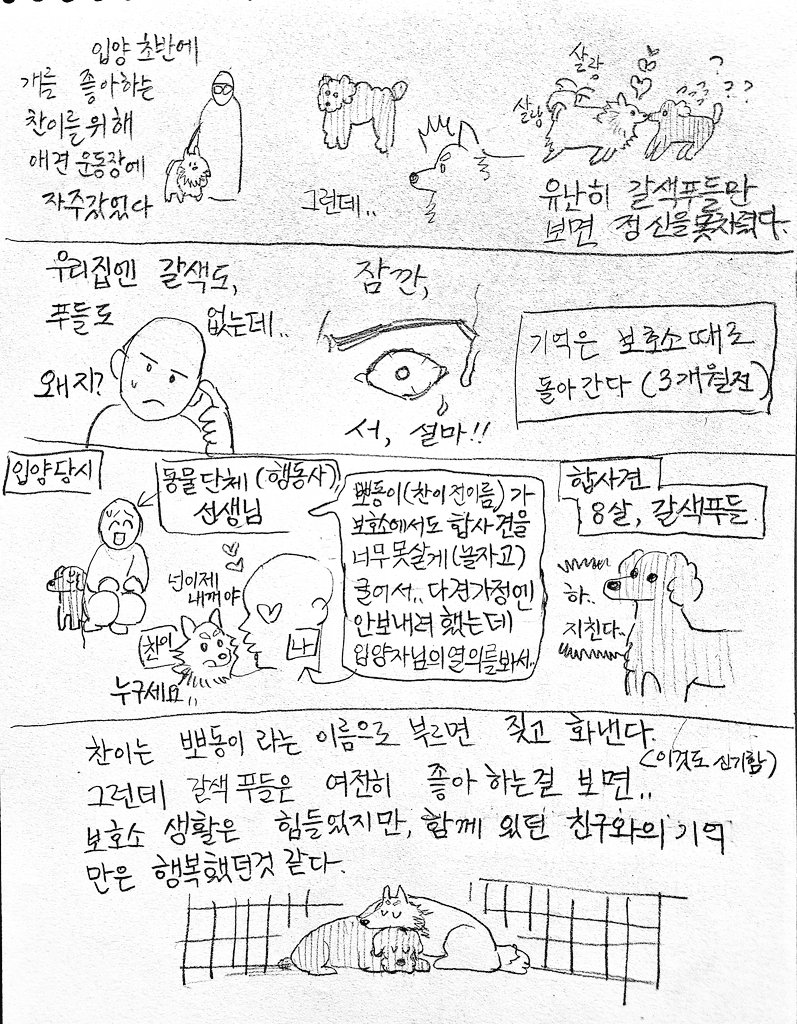 입양 초반에
개를 좋아하는
찬이를 위해
애견 운동장에
자주갔었다
그런데..
살랑
살랑
? ? ?
유난히 갈색푸들만
보면 정신을못차렸다.
우리집엔 갈색도,
푸들도 없는데..
왜지?
잠깐,
서, 설마!!
기억은 보호소때로
돌아간다 (3개월전)
입양당시
동물단체 (행동사)
선생님
넌이제
내꺼야
찬이
누구세요..
나
뽀동이(찬이 전이름) 가
보호소에서도 합사 견을
너무못살게 (놀자고)
굴어서.. 다견가정엔
안보내려 했는데
입양자님의열의를봐서..
합사견
8살, 갈색푸들
하..
지친다..
찬이는 뽀동이 라는 이름으로 부르면 짖고 화낸다.
(이것도 신기함)
그런데 갈색 푸들은 여전히 좋아 하는걸 보면..
보호소 생활은 힘들었지만, 함께 있던 친구와의 기억
만은 행복했던것 같다.